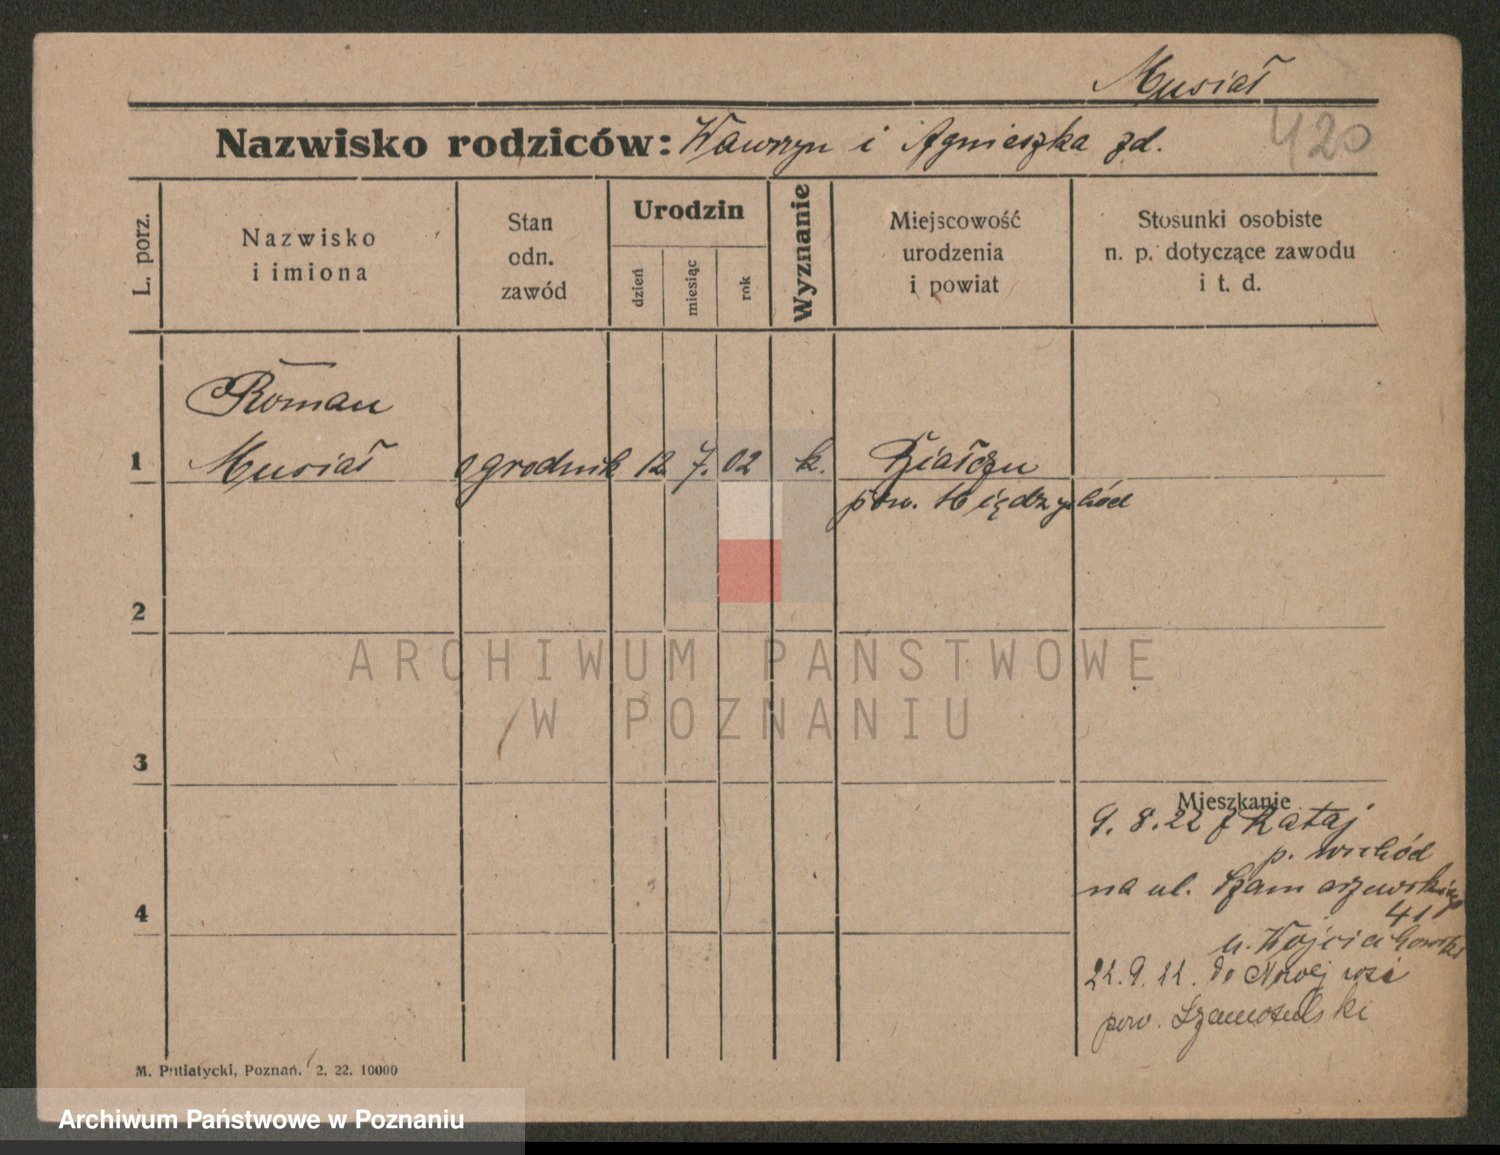 Musiał
Nazwisko rodziców: Wawrzyn i Agnieszka zd.
420
L. porz.
Nazwisko
i imiona
Stan
odn.
zawód
Urodzin
dzień
miesiąc
rok
Wyznanie
Miejscowość
urodzenia
i powiat
Stosunki osobiste
n. p. dotyczące zawodu
i t. d.
Roman
1 Musiał ogrodnik 12 7. 02 k.
pow. Międzychód
2
ARCHIWUM PAŃSTWOWE
W POZNANIU
3
Mieszkanie
9. 8. 22 z Rataj
p. wschód
na ul. Szamarzewskiego
4
41
u. Wojciechowski
22. 9. 22. do Nowej wsi
pow. Szamotulski
M. Putiatycki, Poznań. 2. 22. 10000
Archiwum Państwowe w Poznaniu